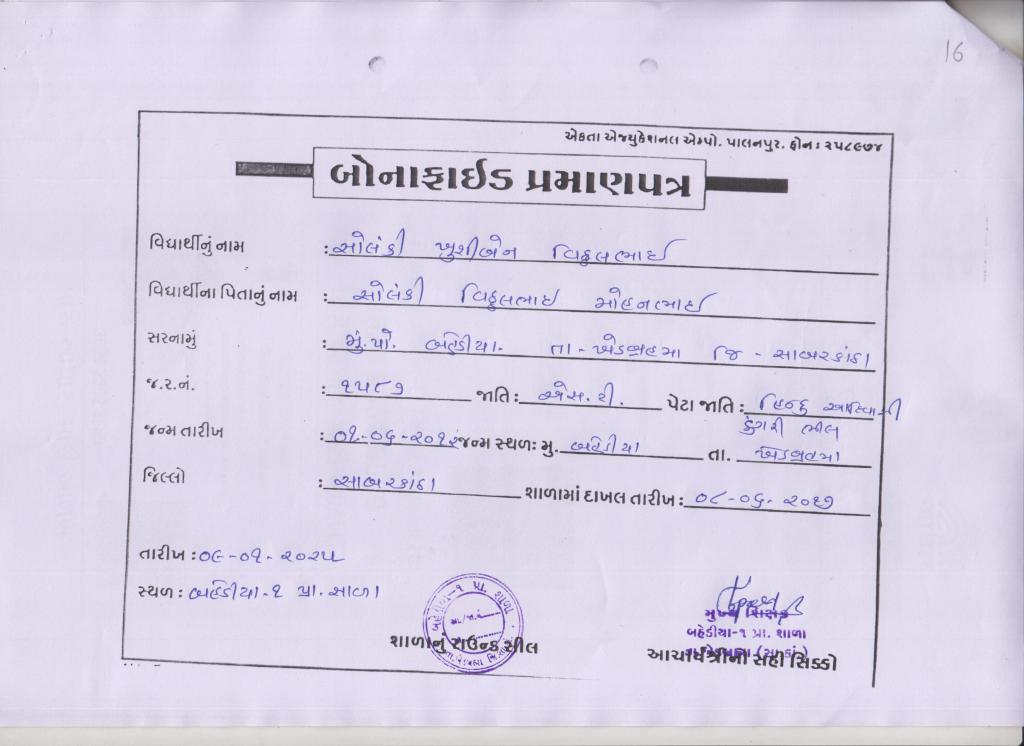 16
એકતા એજ્યુકેશનલ એમ્પો. પાલનપુર. ફોન : ૨૫૮૯૭૪
બોનાફાઈડ પ્રમાણપત્ર
વિદ્યાર્થીનું નામ : સોલંકી ખુશીબેન વિઠ્ઠલભાઈ
વિદ્યાર્થીના પિતાનું નામ : સોલંકી વિઠ્ઠલભાઇ મોહનભાઈ
સરનામું : મું.પો. બહેડીયા. તા - ખેડબ્રહ્મા જિ - સાબરકાંઠા
જ.ર.નં. : ૧૫૮૭ જાતિ : એસ.ટી. પેટા જાતિ : હિન્દુ આદિવાસી
ડુંગરી ભીલ
જન્મ તારીખ : ૦૧-૦૬-૨૦૧૨ જન્મ સ્થળ: મુ. બહેડીયા તા. ખેડબ્રહ્મા
જિલ્લો : સાબરકાંઠા શાળામાં દાખલ તારીખ : ૦૮-૦૬-૨૦૧૭
તારીખ : ૦૯-૦૧-૨૦૨૫
સ્થળ : બહેડીયા-૧ પ્રા. સાળા
બહેડીયા-૧ પ્રા. શાળા
શાળાનું રાઉન્ડ સીલ
મુખ્ય શિક્ષક
બહેડીયા-૧ પ્રા. શાળા
આચાર્યશ્રીની સહી સિક્કો